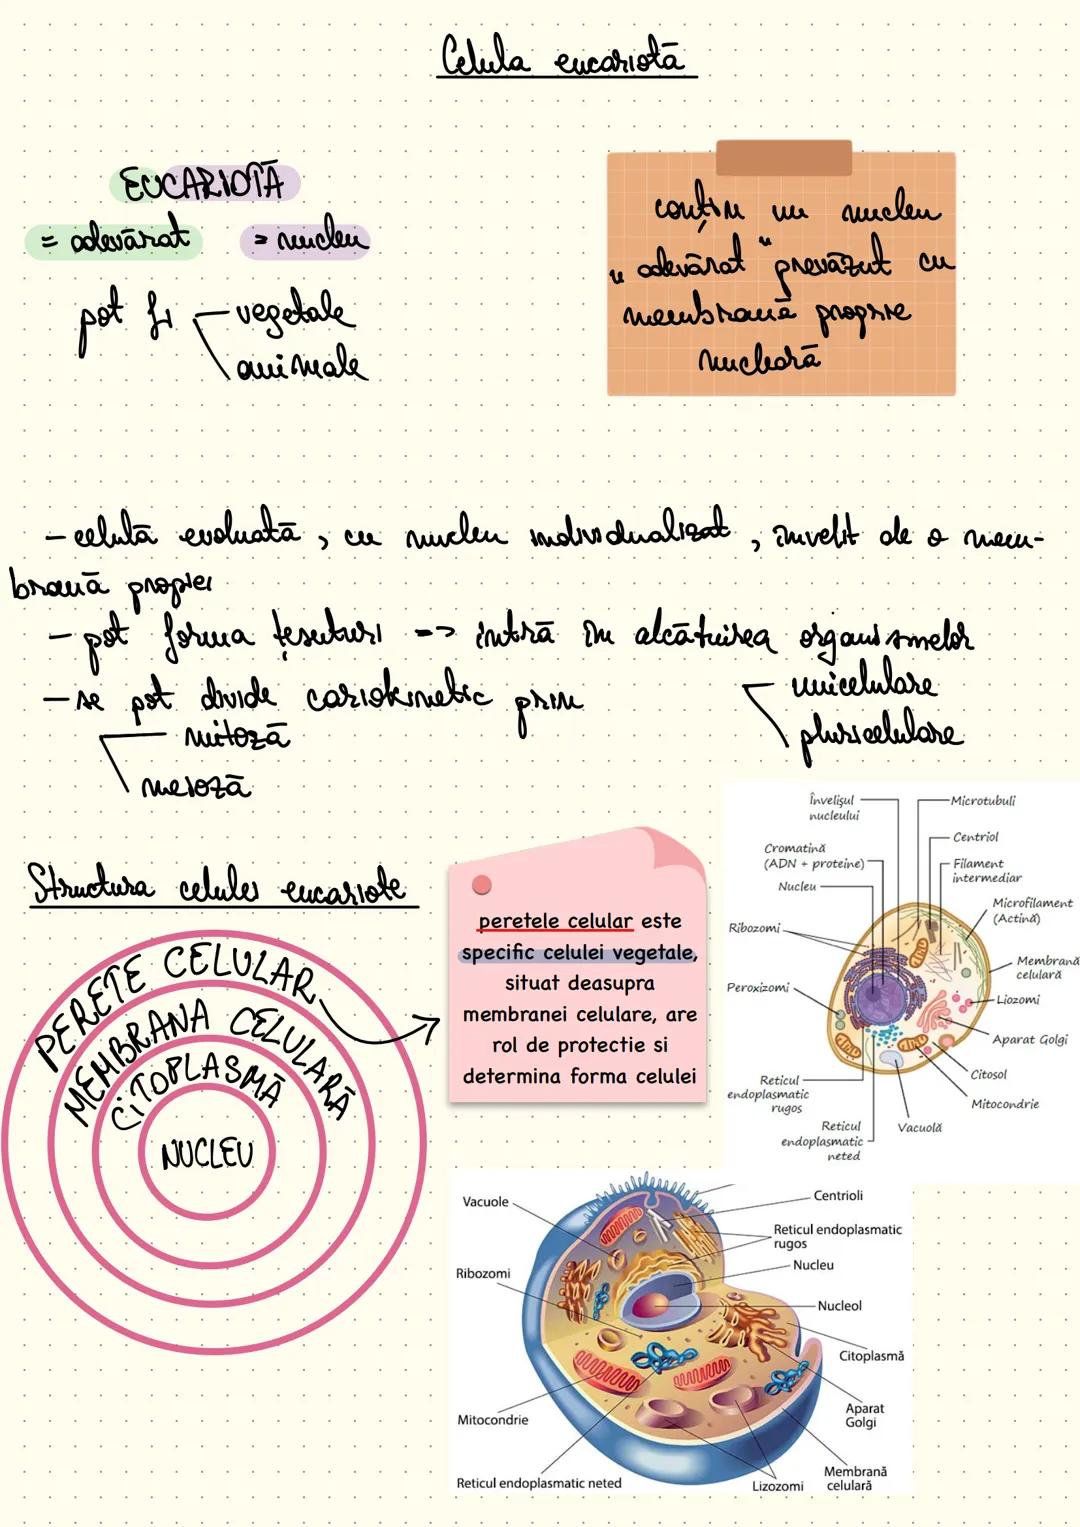 Celula eucariotă
EUCARIOTĂ
= adevărat = nucleu
pot fi vegetale
animale
conțin un nucleu
„adevărat” prevăzut cu
membrană proprie
nucleară
- celulă evoluată, cu nucleu individualizat, învelit de o mem-
brană propriei
- pot forma țesuturi => intră în alcătuirea organismelor
unicelulare
pluricelulare
- se pot divide cariokinetic prin
mitoză
meioză
Structura celulei eucariote
PERETE CELULAR
MEMBRANA CELULARĂ
CITOPLASMĂ
NUCLEU
peretele celular este
specific celulei vegetale,
situat deasupra
membranei celulare, are
rol de protectie si
determina forma celulei
Învelișul
nucleului
Cromatină
(ADN + proteine)
Nucleu
Ribozomi
Peroxizomi
Reticul
endoplasmatic
rugos
Reticul
endoplasmatic
neted
Microtubuli
Centriol
Filament
intermediar
Microfilament
(Actină)
Membrană
celulară
Liozomi
Aparat Golgi
Citosol
Mitocondrie
Vacuolă
Vacuole
Ribozomi
Mitocondrie
Reticul endoplasmatic neted
Centrioli
Reticul endoplasmatic
rugos
Nucleu
Nucleol
Citoplasmă
Aparat
Golgi
Membrană
celulară
Lizozomi